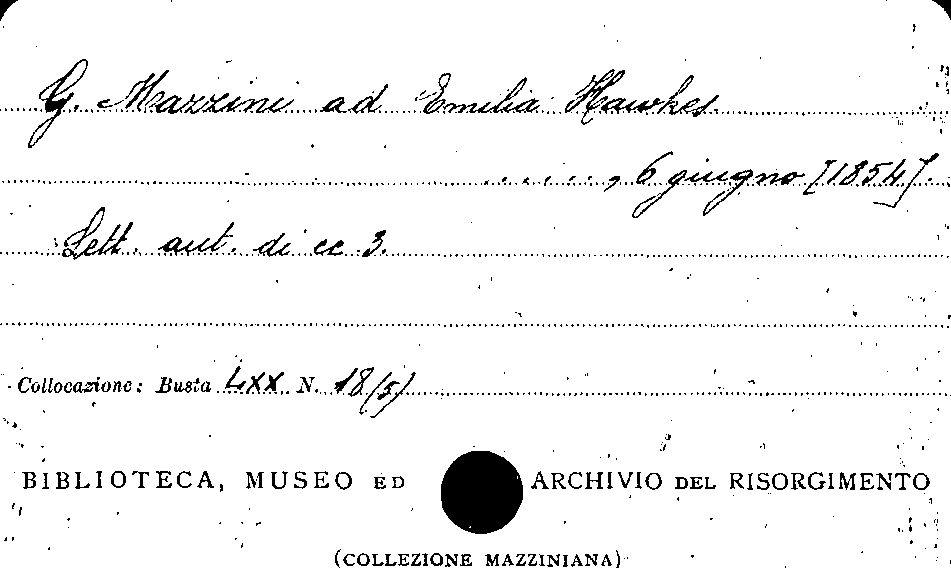 G. Mazzini ad Emilia Hawkes
....., 6 giugno [1854].
Lett. aut. di cc 3.
Collocazione: Busta LXX N. 18(5)
BIBLIOTECA, MUSEO ED ARCHIVIO DEL RISORGIMENTO
(COLLEZIONE MAZZINIANA)